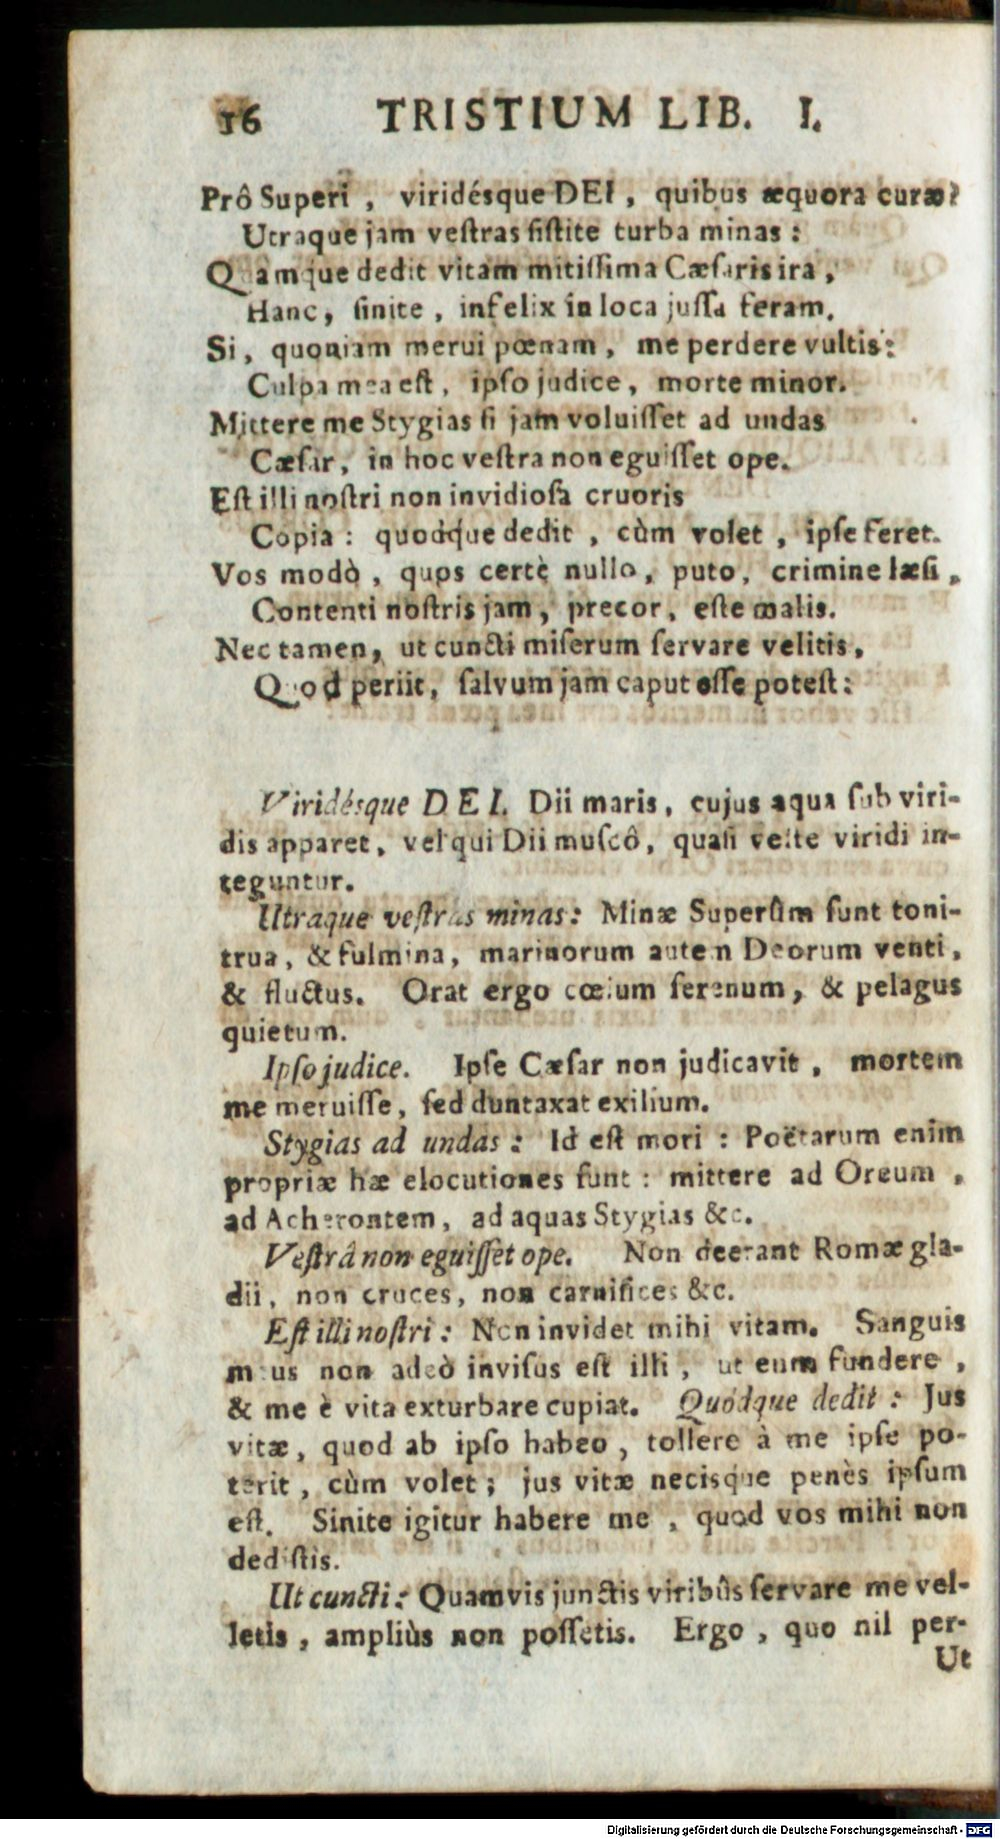 16 TRISTIUM LIB. I.
Prô Superi , viridésque DEI , quibus æquora curæ?
Utraque jam veſtras ſiſtite turba minas :
Quamque dedit vitam mitiſſima Cæſaris ira ,
Hanc, ſinite , infelix in loca juſſa feram.
Si, quoniam merui pœnam , me perdere vultis:
Culpa mea eſt, ipſo judice, morte minor.
Mittere me Stygias ſi jam voluiſſet ad undas
Cæſar, in hoc veſtra non eguiſſet ope.
Eſt illi noſtri non invidioſa cruoris
Copia : quodque dedit , cùm volet , ipſe feret.
Vos modò , quos certè nullo, puto, crimine læſi ,
Contenti noſtris jam, precor, eſte malis.
Nec tamen, ut cuncti miſerum ſervare velitis,
Quod periit, ſalvum jam caput eſſe poteſt:
Viridésque DEI. Dii maris, cujus aqua ſub viri-
dis apparet, vel qui Dii muſcô, quaſi veſte viridi in-
teguntur.
Utraque veſtras minas: Minæ Superûm ſunt toni-
trua, & fulmina, marinorum autem Deorum venti,
& fluctus. Orat ergo cœlum ſerenum, & pelagus
quietum.
Ipſo judice. Ipſe Cæſar non judicavit , mortem
me meruiſſe, ſed duntaxat exilium.
Stygias ad undas : Id eſt mori : Poëtarum enim
propriæ hæ elocutiones ſunt : mittere ad Orcum ,
ad Acherontem, ad aquas Stygias &c.
Veſtrâ non eguiſſet ope. Non deerant Romæ gla-
dii, non cruces, non carnifices &c.
Eſt illi noſtri : Non invidet mihi vitam. Sanguis
meus non adeò inviſus eſt illi , ut eum fundere ,
& me è vita exturbare cupiat. Quódque dedit : Jus
vitæ, quod ab ipſo habeo , tollere à me ipſe po-
terit , cùm volet ; jus vitæ necisque penès ipſum
eſt. Sinite igitur habere me , quod vos mihi non
dediſtis.
Ut cuncti : Quamvis junctis viribûs ſervare me vel-
letis , ampliùs non poſſetis. Ergo , quo nil per-
Ut
Digitalisierung gefördert durch die Deutsche Forschungsgemeinschaft - DFG